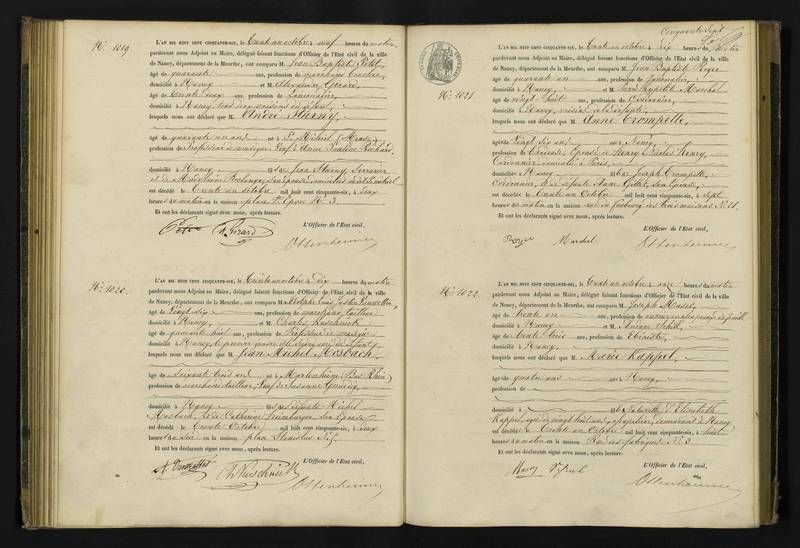 N° 1019.
L'AN MIL HUIT CENT CINQUANTE-SIX, le Trente un octobre à neuf heures du matin
pardevant nous Adjoint au Maire, délégué faisant fonctions d'Officier de l'Etat civil de la ville
de Nancy, département de la Meurthe, ont comparu M. Jean Baptiste Petit
âgé de quarante ans, profession de
domicilié à Nancy et M. Alexandre Gérard,
âgé de trente deux ans, profession de
domicilié à Nancy, tous deux voisins du défunt,
lesquels nous ont déclaré que M. André Thirny,
âgé de quarante un ans né à St Mihiel (Meuse)
profession de Professeur de musique, Veuf d'Anne Pauline Richard,
domicilié à Nancy fils de Jean Thirny, Serrurier
et de Madeleine son épouse, domiciliés à St Mihiel
est décédé le trente un octobre mil huit cent cinquante-six, à deux
heures du matin en la maison place St Epvre N° 3.
Et ont les déclarants signé avec nous, après lecture.
L'Officier de l'Etat civil,
Petit A. Gérard
Ottenheimer
N° 1020.
L'AN MIL HUIT CENT CINQUANTE-SIX, le Trente un octobre à dix heures du matin
pardevant nous Adjoint au Maire, délégué faisant fonctions d'Officier de l'Etat civil de la ville
de Nancy, département de la Meurthe, ont comparu M. Adolphe Louis
âgé de Vingt six ans, profession de marchand tailleur
domicilié à Nancy et M. Charles Kuschnick
âgé de quarante huit ans, profession de Professeur de musique
domicilié à Nancy, le premier gendre
lesquels nous ont déclaré que M. Jean Michel Mosbach,
âgé de Soixante trois ans né à Marlenheim (Bas Rhin)
profession de marchand tailleur, Veuf de Susanne
domicilié à Nancy fils de défunts Michel
Mosbach, et de Catherine son épouse
est décédé le trente Octobre mil huit cent cinquante-six, à deux
heures du soir en la maison place Stanislas N° 5.
Et ont les déclarants signé avec nous, après lecture.
L'Officier de l'Etat civil,
Ch. Kuschnick
Ottenheimer
Cinquante Sept
L'AN MIL HUIT CENT CINQUANTE-SIX, le Trente un octobre à dix heures du matin
pardevant nous Adjoint au Maire, délégué faisant fonctions d'Officier de l'Etat civil de la ville
de Nancy, département de la Meurthe, ont comparu M. Jean Baptiste Royer
N° 1021.
âgé de quarante un ans, profession de Journalier,
domicilié à Nancy, et M. Marchal
âgé de vingt huit ans, profession de Cordonnier,
domicilié à Nancy, voisins de la défunte,
lesquels nous ont déclaré que M. Anne Trompette,
âgée de Vingt six ans née à Nancy,
profession de Epouse de Henry Nicolas Henry,
Cordonnier, domicilié à Paris,
domiciliée à Nancy fille de Joseph Trompette,
Cordonnier, et de défunte Anne son épouse,
est décédée le trente un Octobre mil huit cent cinquante-six, à sept
heures du matin en la maison rue du faubourg des trois maisons N° 21.
Et ont les déclarants signé avec nous, après lecture.
L'Officier de l'Etat civil,
Royer Marchal
Ottenheimer
N° 1022.
L'AN MIL HUIT CENT CINQUANTE-SIX, le Trente un octobre à onze heures du matin
pardevant nous Adjoint au Maire, délégué faisant fonctions d'Officier de l'Etat civil de la ville
de Nancy, département de la Meurthe, ont comparu M. Joseph
âgé de trente un ans, profession de
domicilié à Nancy et M.
âgé de trente trois ans, profession de Ebéniste,
domicilié à Nancy,
lesquels nous ont déclaré que M. Marie Kappel,
âgée de quatre ans née à Nancy,
profession de
domiciliée à fille naturelle d'Elisabeth
Kappel, âgée de vingt huit ans, demeurant à Nancy
est décédée le trente un Octobre mil huit cent cinquante-six, à huit
heures du matin en la maison Rue des fabriques N° 3
Et ont les déclarants signé avec nous, après lecture.
L'Officier de l'Etat civil,
Ottenheimer